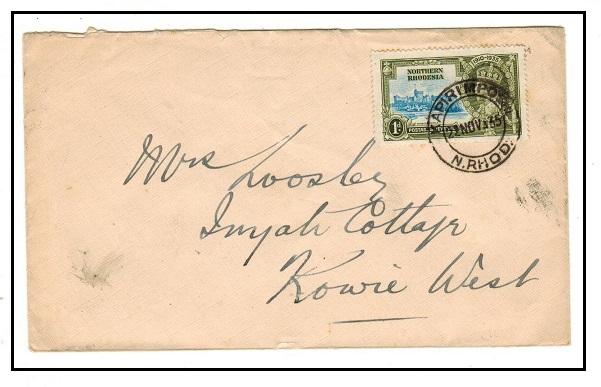 1910-1935
NORTHERN
RHODESIA
1d
POSTAGE & REVENUE
KAPIRI MPOSHI
NOV 35
N. RHOD.
Mrs Loosley
Inyati Cottage
Kowie West